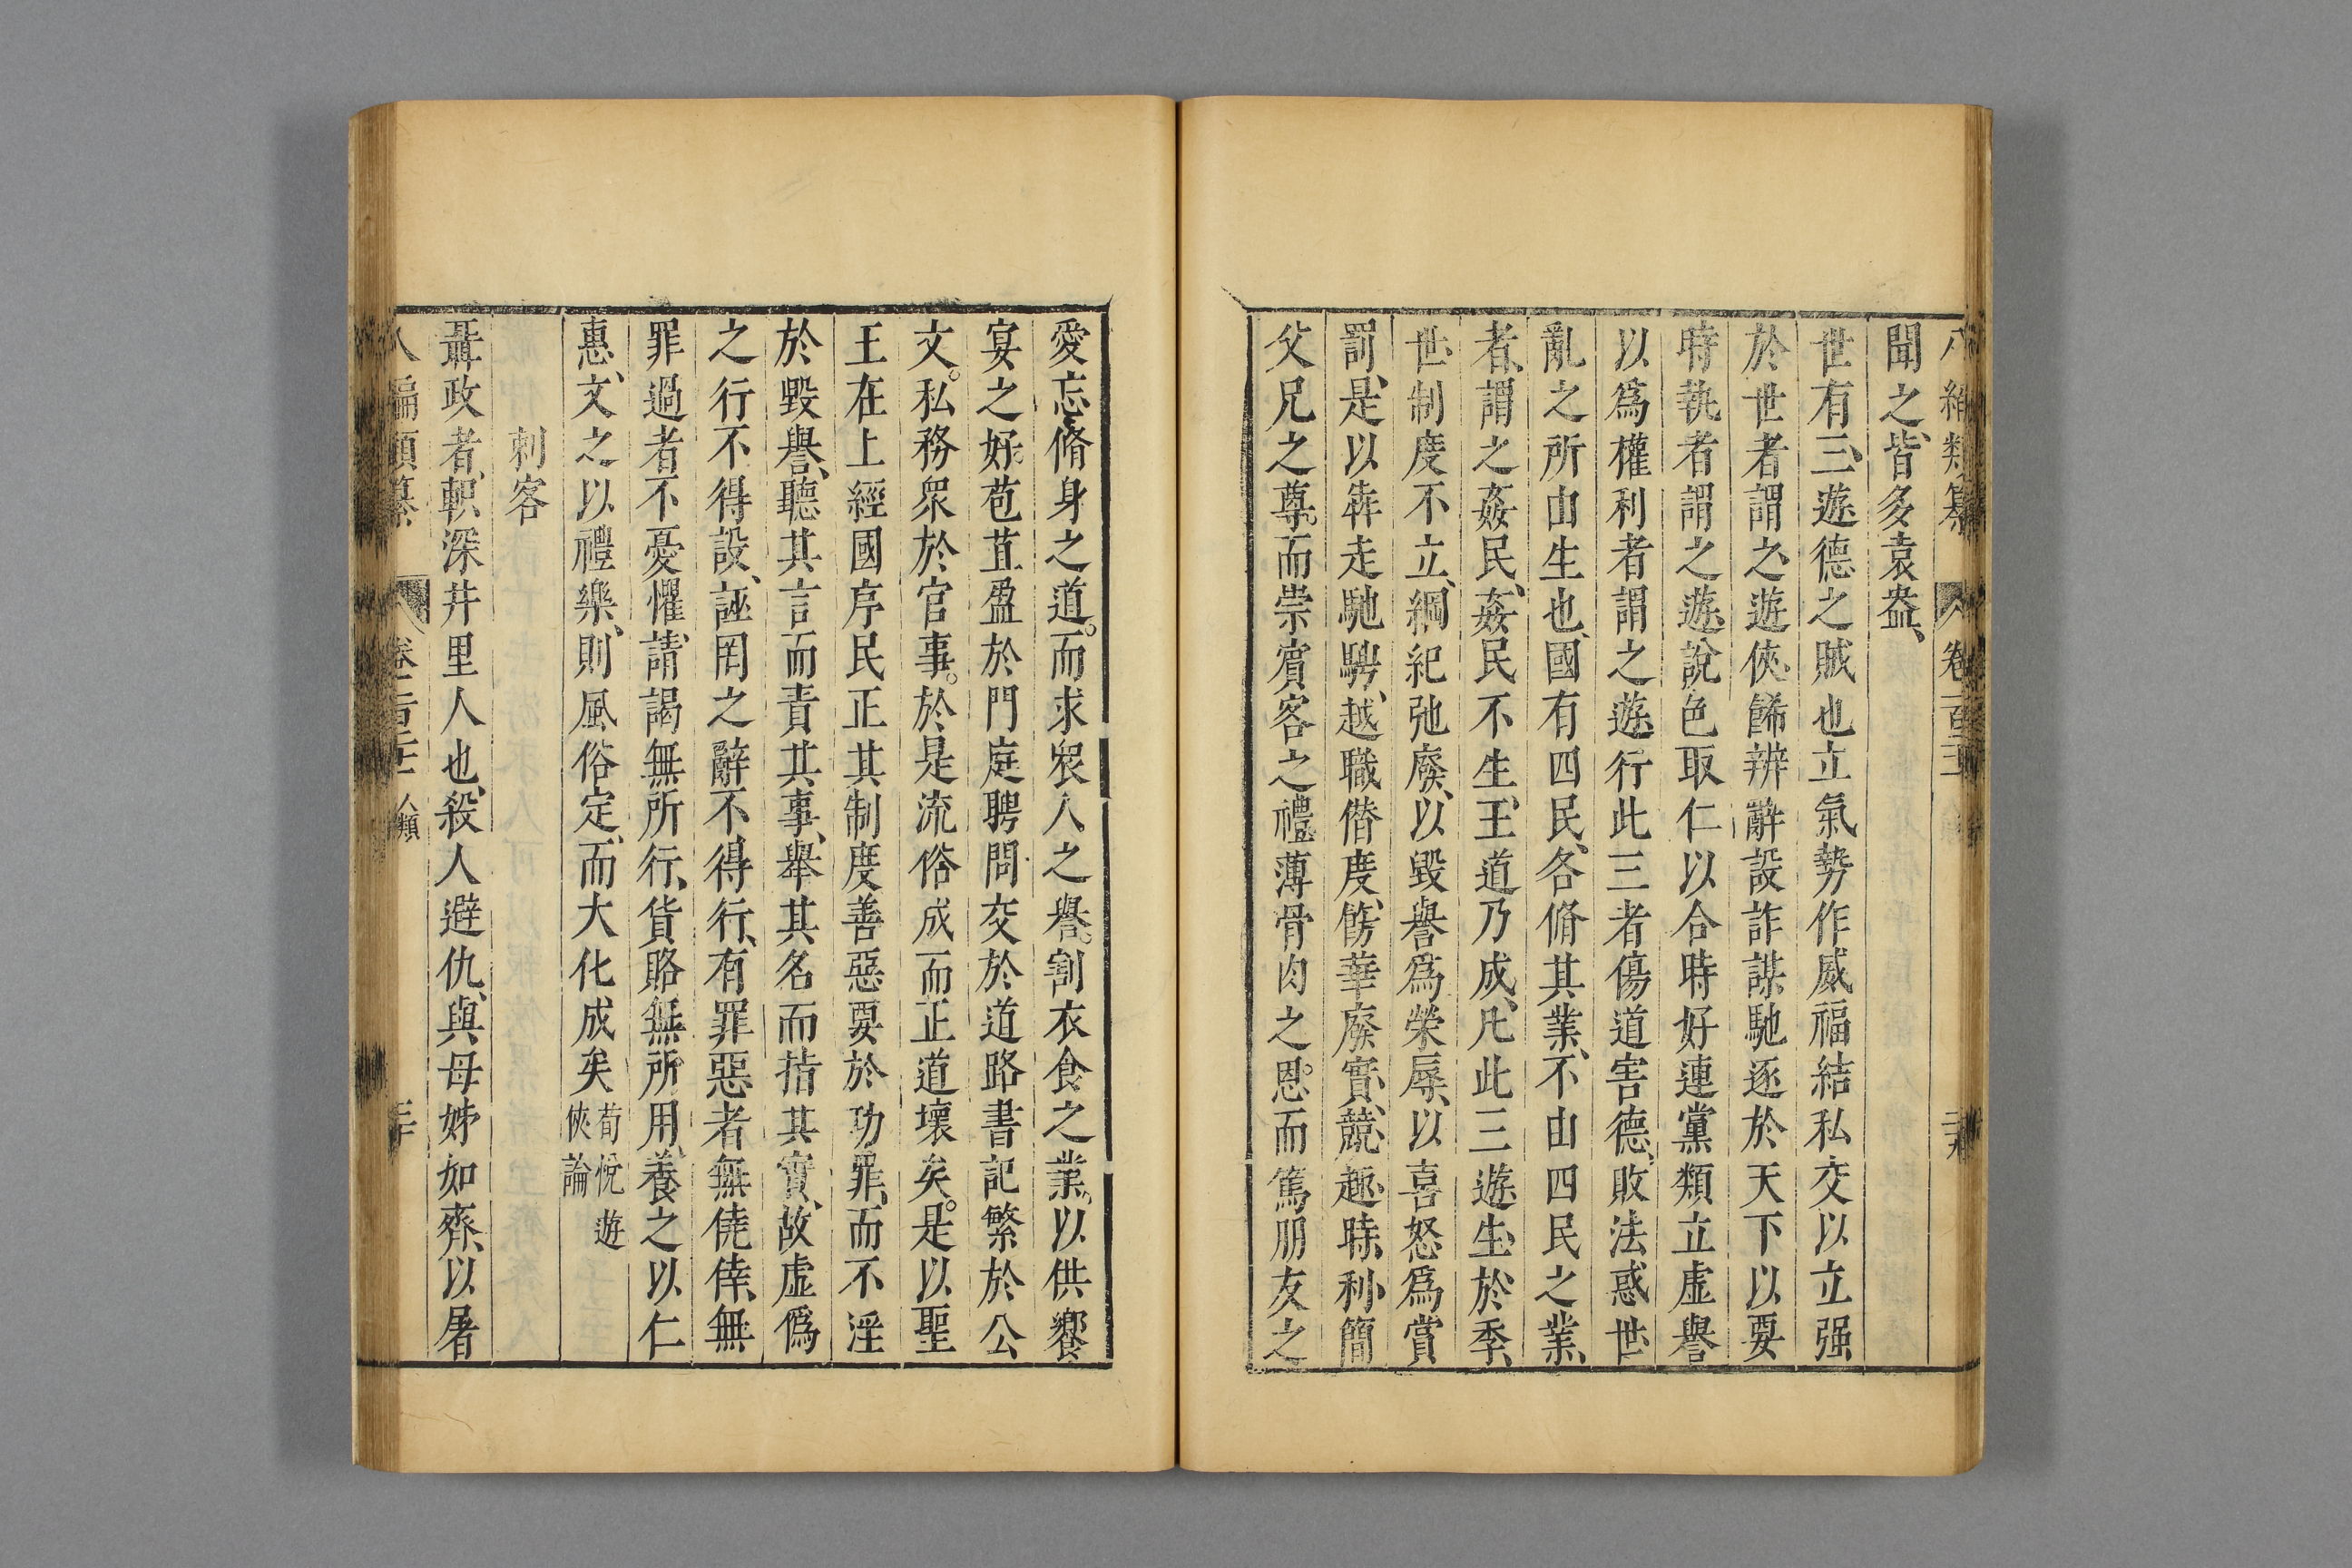 聞之、皆多袁盎、
世有三遊德之賊也立氣勢作威福結私交以立强
於世者謂之遊俠餙辨辭設詐謀馳逐於天下以要
時執者謂之遊說色取仁以合時好連黨類立虛譽
以爲權利者謂之遊行此三者傷道害德、敗法惑世
亂之所由生也、國有四民、各脩其業、不由四民之業、
者、謂之姦民、姦民不生、王道乃成、凡此三遊生於季、
世制度不立、綱紀弛廢、以毀譽爲榮辱、以喜怒爲賞
罰、是以犇走馳騁、越職僭度、餝華廢實、競趣時利、簡
父兄之尊。而崇賓客之禮薄骨肉之恩。而篤朋友之
愛忘脩身之道。而求衆人之譽。割衣食之業。以供饗
宴之好。苞苴盈於門庭聘問交於道路書記繁於公
文。私務衆於官事。於是流俗成而正道壞矣。是以聖
王在上經國序民正其制度善惡要於功罪、而不淫
於毀譽、聽其言而責其事、舉其名而指其實、故虛僞
之行不得設、誣罔之辭不得行、有罪惡者無僥倖、無
罪過者不憂懼、請謁無所行、貨賂無所用、養之以仁
惠、文之以禮樂、則風俗定、而大化成矣 荀悅遊俠論
刺客
聶政者、軹深井里人也、殺人避仇、與母姊如齊、以屠
八編類纂 卷 人類